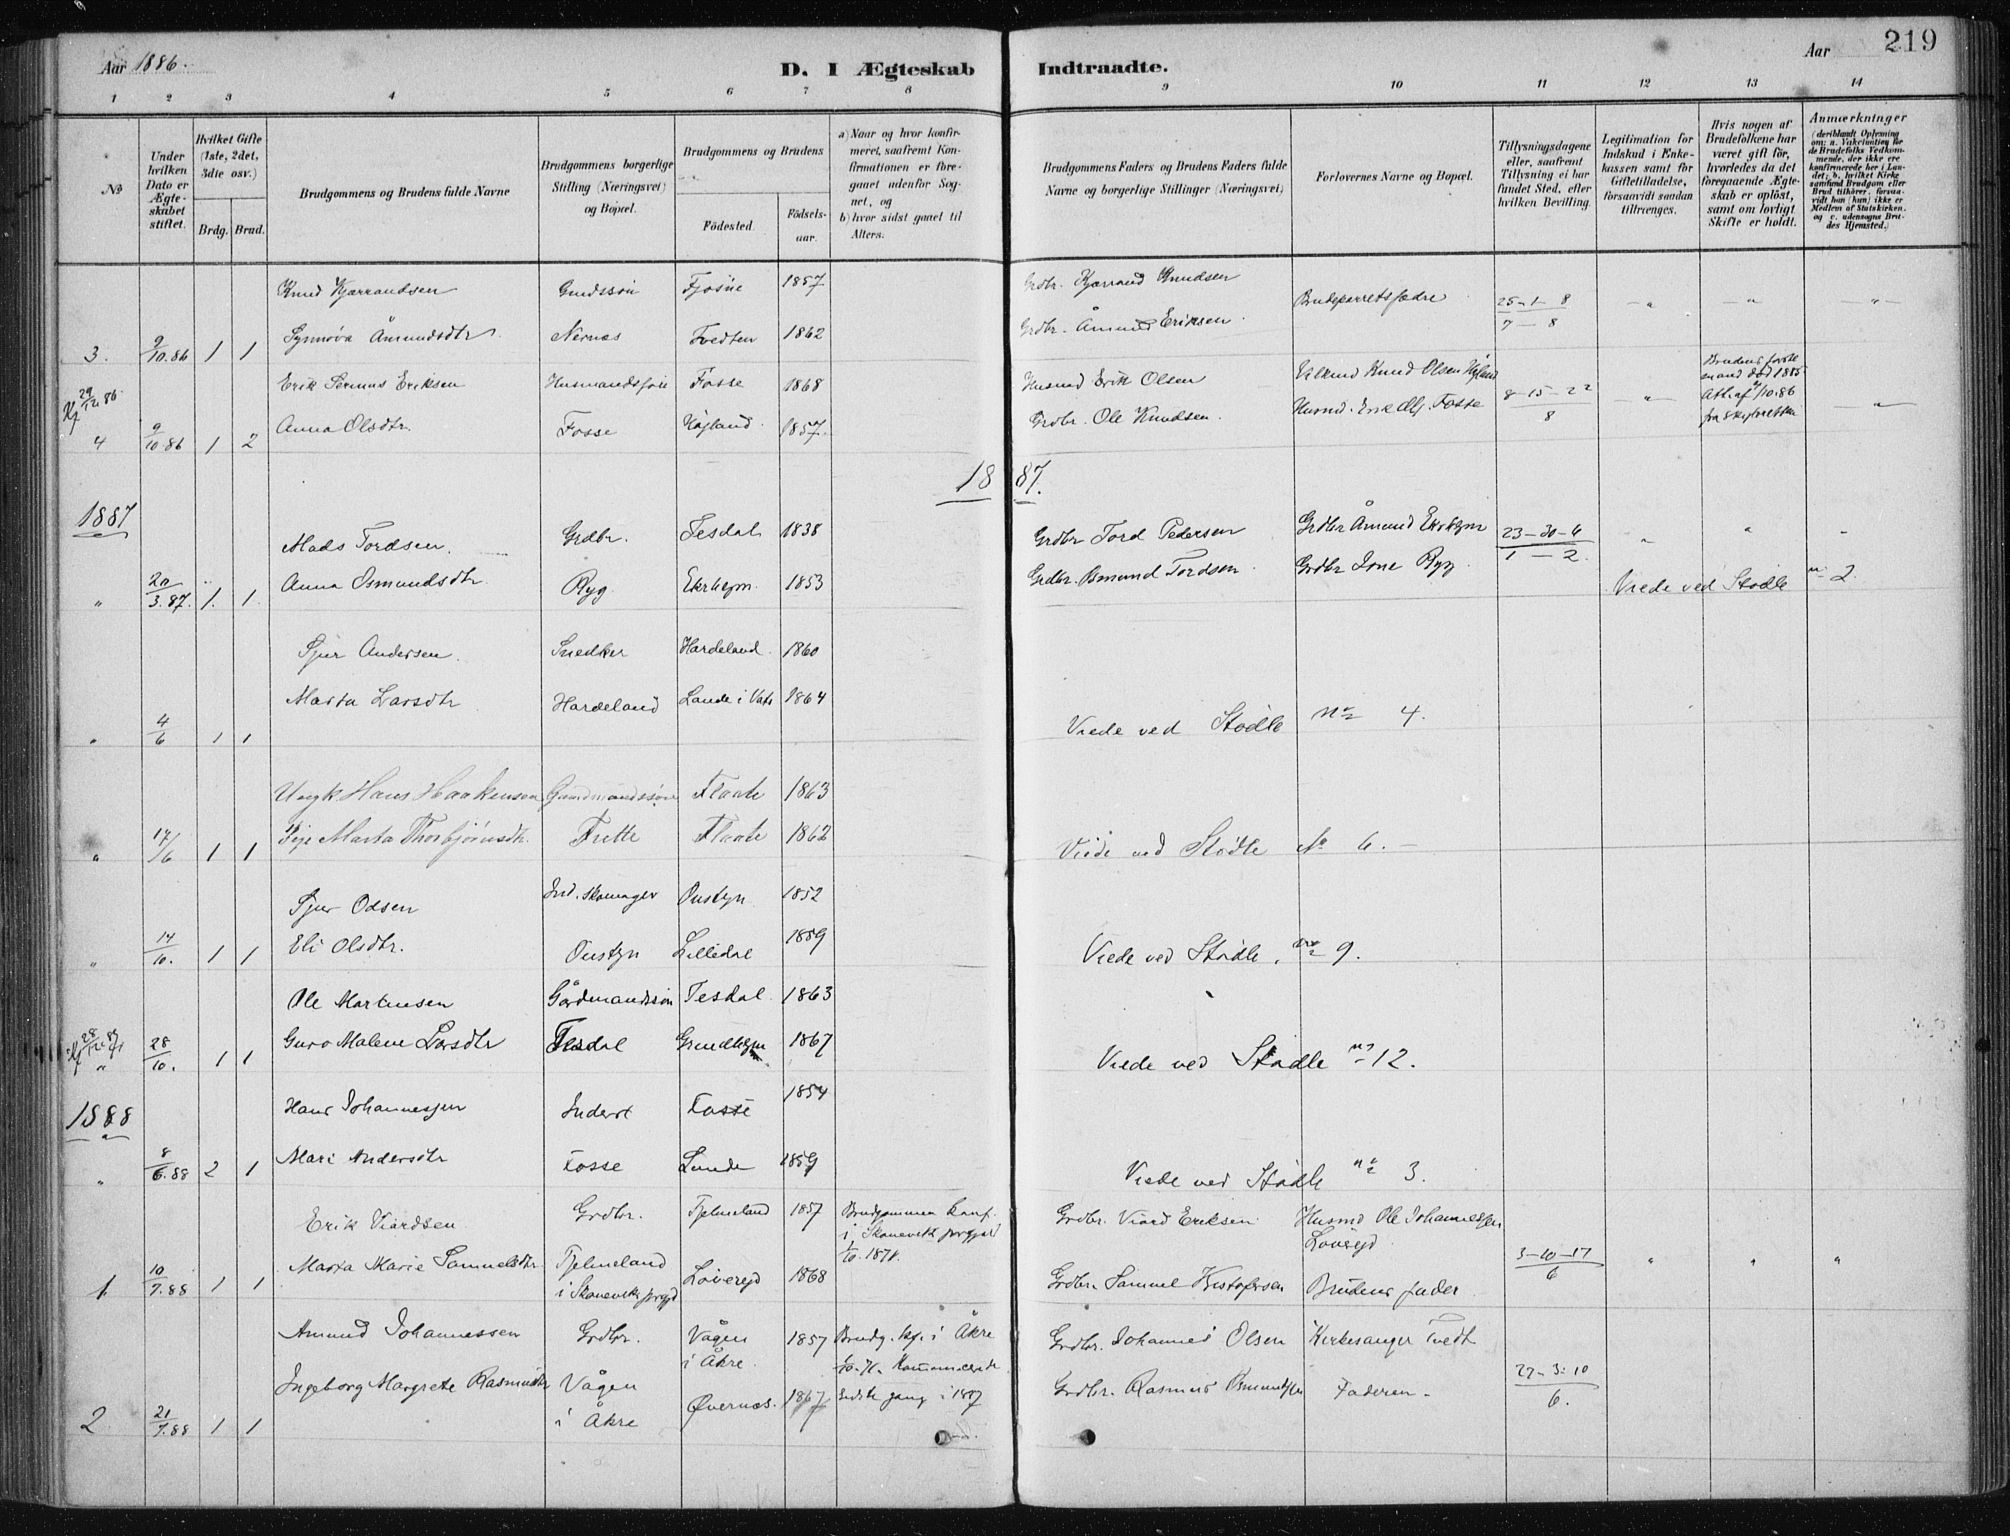 Aar 1886.
D. I Ægteskab Indtraadte.
Aar 219
1 2 3 4 5 6 7 8 9 10 11 12 13 14
№
Under hvilken Dato er Ægteskabet stiftet.
Hvilket Gifte (1ste, 2det, 3die osv.)
Brdg. Brud.
Brudgommens og Brudens fulde Navne
Brudgommens borgerlige Stilling (Næringsvei) og Bopæl.
Brudgommens og Brudens
Fødested. Fødselsaar.
a) Naar og hvor konfirmeret, saafremt Konfirmationen er foregaaet udenfor Sognet, og
b) hvor sidst gaaet til Alters.
Brudgommens Faders og Brudens Faders fulde Navne og borgerlige Stillinger (Næringsvei)
Forlovernes Navne og Bopæl.
Tillysningsdagene eller, saafremt Tillysning ei har fundet Sted, efter hvilken Bevilling.
Legitimation for Indskud i Enkekassen samt for Giftetilladelse, forsaavidt saadan tiltrænges.
Hvis nogen af Brudefolkene har været gift før, hvorledes da det foregaaende Ægteskab er opløst, samt om lovligt Skifte er holdt.
Anmærkninger (deriblandt Oplysning om: a. Vakcination for de Brudefolks Vedkommende, der ikke ere konfirmerede her i Landet; b. hvilket Kirkesamfund Brudgom eller Brud tilhører, forsaavidt han (hun) ikke er Medlem af Statskirken, og c. udensogns Brudes Hjemsted.)
Knud Kjærrandsen Gmdssøn Fjøsne 1857 Grdbr. Kjærrand Knudsen Brudeparrets fædre 25-1-8 / 7-8 - " - - " - - " -
3. 9/10.86 1 1 Synnøva Åmundsdtr. Nernes Tvedten 1862 Grdbr. Åmund Eriksen
Erik Severius Eriksen Husmandssøn Fosse 1868 Husmd Erik Olsen Knud Olsen Høiland 8-15-22 / 8 - " - Brudens første mand død 1885 Att. af 4/10.86 fra Skifteretten - " -
Kf 29/12 86
4 9/10.86 1 2 Anna Olsdtr. Fosse Højland 1857. Grdbr. Ole Knudsen. Husmd. Erik Fosse
1887.
1887 Mads Tordsen. Grdbr. Tesdal 1838 Grdbr Tord Pedersen Grdbr Åmund Ekrhejm 23-30-6 / 1-2 " " "
" 20/3.87. 1. 1. Anna Osmundsdtr. Ryg Ekrhejm. 1853 Grdbr. Osmund Tordsen Grdbr Jone Ryg Viede ved Stødle no 2.
Sjur Andersen. Snedker Hardeland 1860
" 4/6 1 1 Marta Larsdtr Hardeland Lunde i Vats 1864 Viede ved Stødle no 4.
Ungk Hans Haakensen Gaardmandssøn Flaate 1863
" 17/6 1 1 Pige Marta Thorbjørnsdtr. Frette Flaate 1862 Viede ved Stødle No 6. -
Sjur Odsen Ind. skomager Oustyn 1852
" 14/10. 1 1 Eli Olsdtr. Oustyn Lilledal 1859 Viede ved Stødle, no 9.
Ole Martinsen Gårdmandssøn Tesdal 1863
Kf 28/12 87
" 28/10. 1 1 Guro Malene Larsdtr Tesdal Grindhejm 1867 Viede ved Stødle no 12.
1888 Hans Johannessen Inderst Fosse 1854
" 8/6.88 2 1 Mari Andersdtr Fosse Lunde 1859 Viede ved Stødle no 3.
Erik Viardsen Grdbr. Tjelmeland 1857 Brudgommen konf. i Skånevik prgjæld 1/10.1871. Grdbr. Viard Eriksen Husmd Ole Johannessen Løvrejd 3-10-17 / 6 " " "
1. 10/7.88 1 1 Marta Marie Samuelsdtr Tjelmeland i Skånevik prgjd Løverejd 1868 Grdbr. Samuel Kristofersen Brudens fader
Amund Johannessen Grdbr. Vågen i Åkre. 1857 Brudg. kf. i Åkre 1/10.71. Kommunicerede Grdbr. Johannes Olsen Kirkesanger Tvedt 27-3-10 / 6.
2 21/7.88 1 1 Ingeborg Margrete Rasmusdtr Vågen i Åkre Øvernæs. 1867 sidste gang i 1887 Grdbr. Rasmus Osmundsen Faderen.